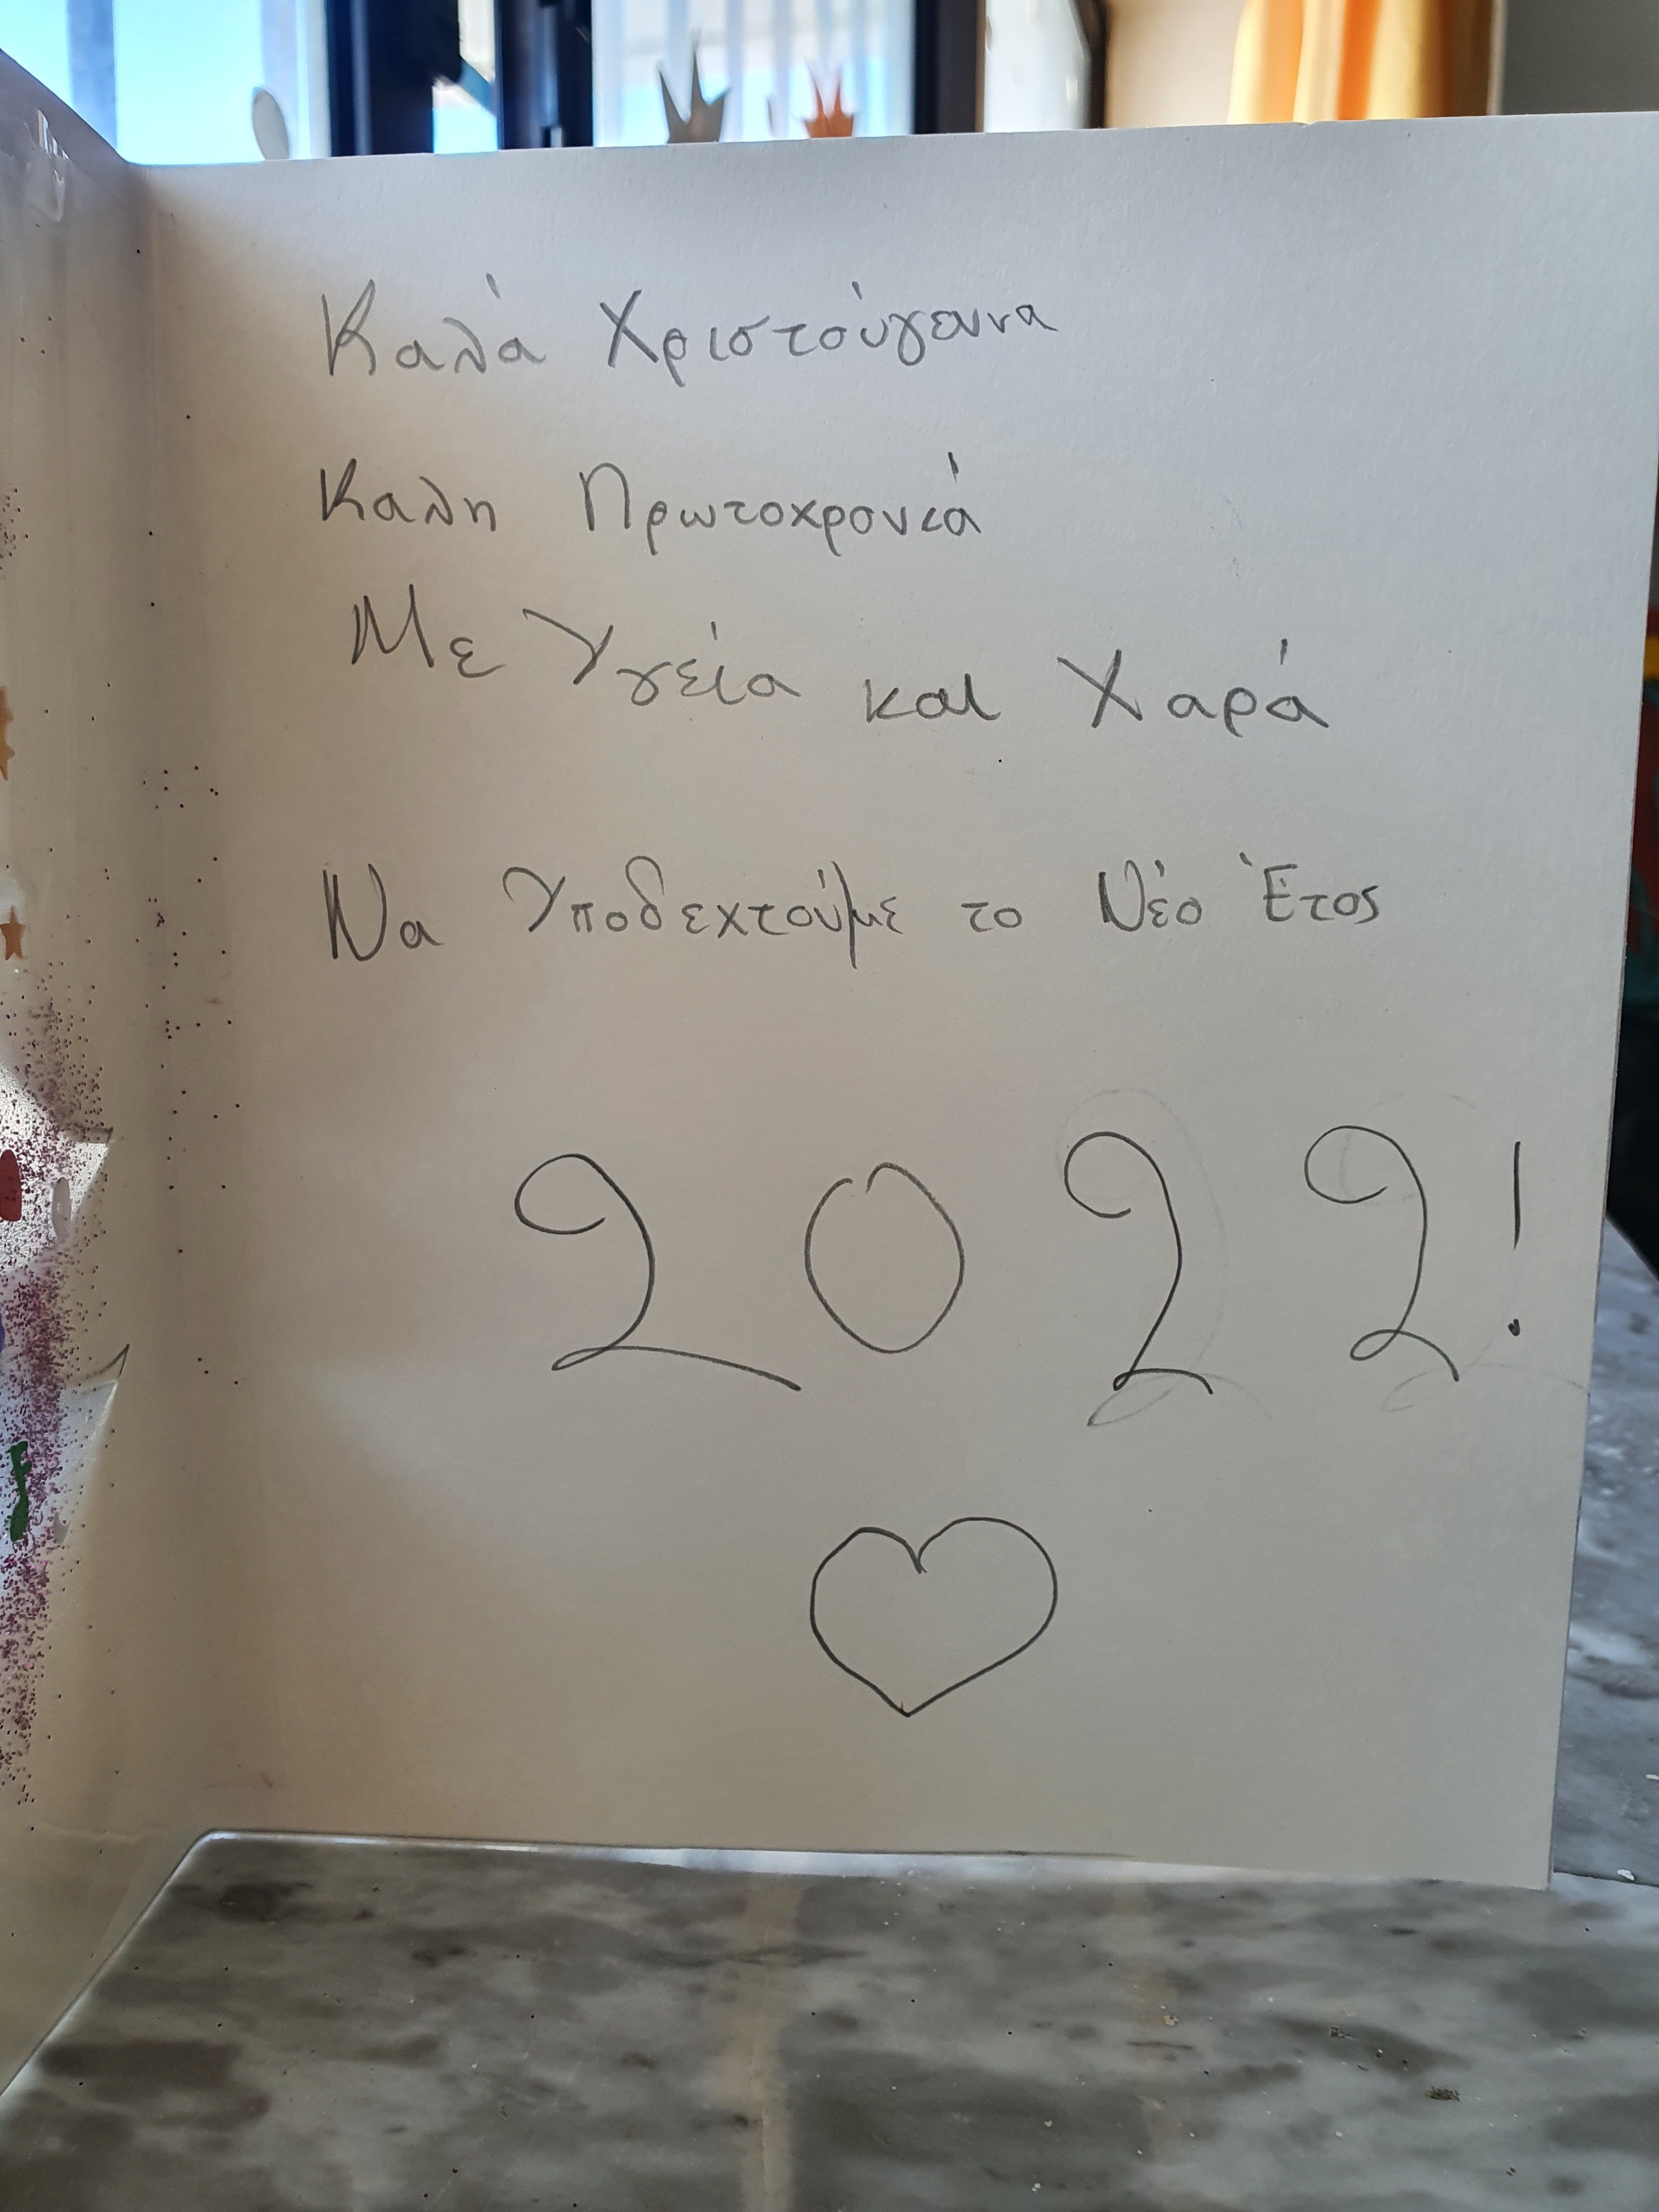 Καλά Χριστούγεννα
Καλη Πρωτοχρονιά
Με Υγεία και Χαρά
Να Υποδεχτούμε το Νέο Έτος
2022!